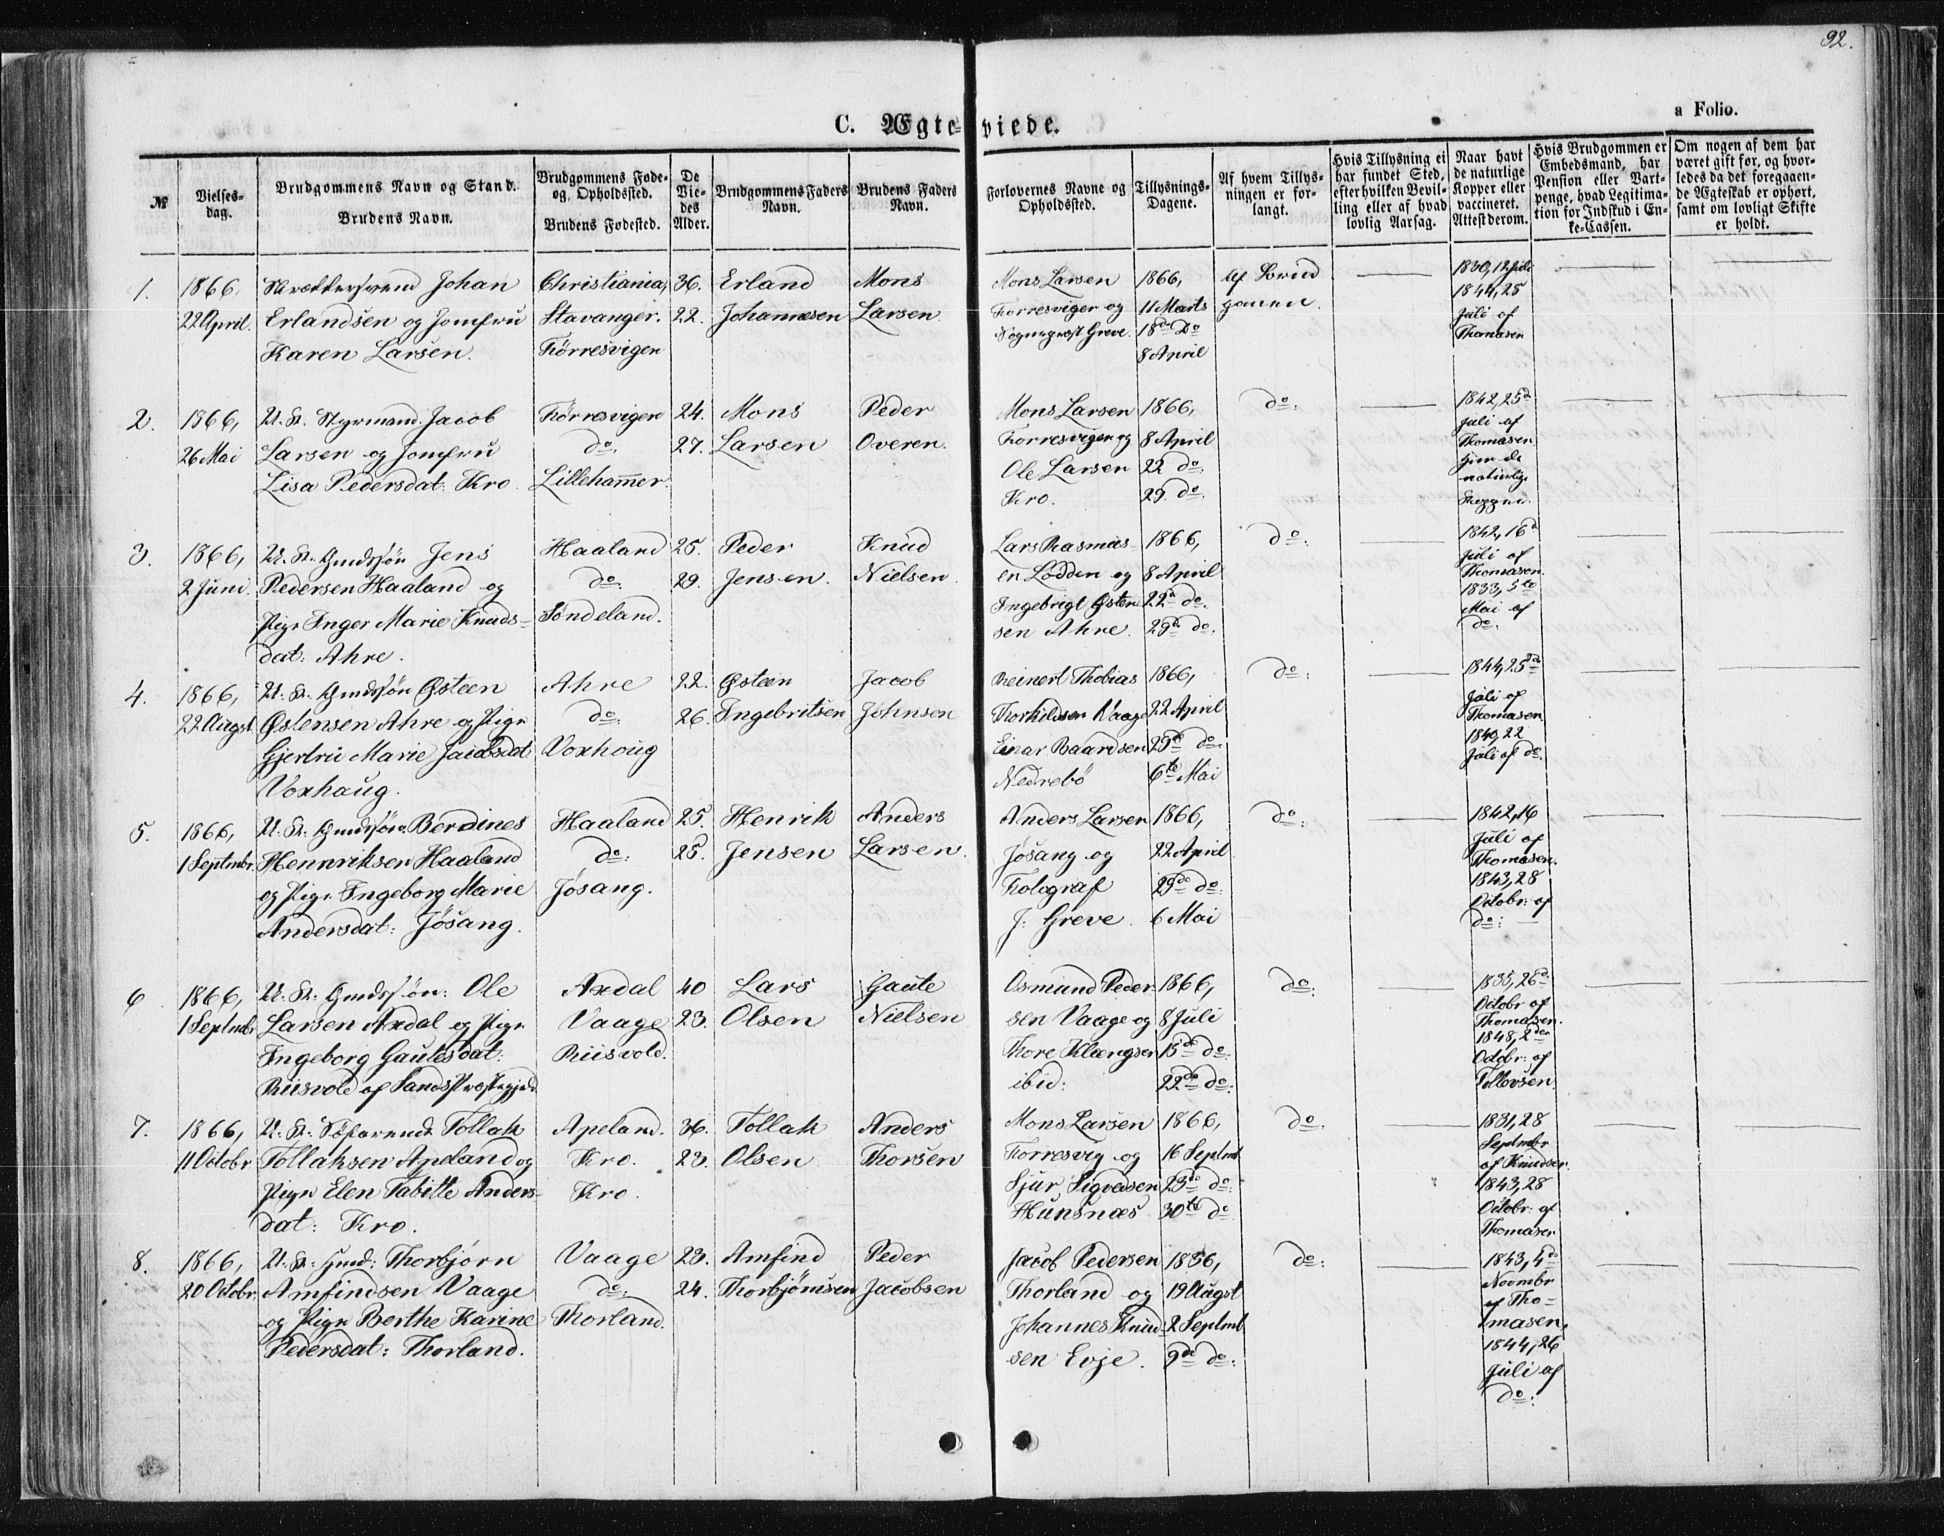 92.
a Folio.
C. Ægteviede.
№
Vielsesdag.
Brudgommens Navn og Stand.
Brudens Navn.
Brudgommens Føde- og Opholdssted.
Brudens Fødested.
De Viedes Alder.
Brudgommens Faders Navn.
Brudens Faders Navn.
Forlovernes Navne og Opholdssted.
Tillysnings-Dagene.
Af hvem Tillysningen er forlangt.
Hvis Tillysning ei har fundet Sted, efter hvilken Bevilling eller af hvad lovlig Aarsag.
Naar havt de naturlige Kopper eller vaccineret. Attest derom.
Hvis Brudgommen er Embedsmand, har Pension eller Vartpenge, hvad Legitimation for Indskud i Enke-Cassen.
Om nogen af dem har været gift før, og hvorledes da det foregaaende Ægteskab er ophørt, samt om lovligt Skifte er holdt.
1. 1866, Skræddersvend Johan Christiania, 36. Erland Mons Mons Larsen 1866, Af Brudgommen. 1830, 12 Juli
22 April. Erlandsen og Jomfru Stavanger. 22. Johannesen Larsen Tørresvigen og 11 Marts 1844, 25
Karen Larsen. Tørresvigen Sogneprest Greve. 18de Do Juli af
8 April Thomasen
2. 1866, U. K. Styrmand Jacob Tørresvigen 24. Mons Peder Mons Larsen 1866, do: 1842, 25d
26 Mai Larsen og Jomfru do: 27. Larsen Overen. Tørresvigen og 8 April Juli af
Lisa Pedersdat: Kro. Lillehammer. Ole Larsen 22 do: Thomasen
Kro. 29. do. naturlige
3. 1866, U. K. Gmdssøn Jens Haaland 25. Peder Knud Lars Rasmus- 1866, do: 1842, 16d
2 Juni. Pedersen Haaland og do: 29. Jensen. Nielsen. en Lodden og 8 April Juli af
Pige Inger Marie Knuds- Søndeland. Ingebrigt Østen 22d do. Thomasen.
dat: Ahre. sen Ahre. 29d do. 1833, 5te
Mai af
do:
4. 1866, U. K. Gmdssøn Østeen Ahre 22. Østeen Jacob Reinert Thobias 1866, do: 1844, 25de
22 Augst. Østensen Ahre og Pige do: 26. Ingebritsen Johnsen Thorkildsen Vaage 22 April Juli af
Gjertru Marie Jacobsdat Voxhoug Einar Baardsen 29de do: Thomasen
Voxhaug. Nedrebö 6te Mai 1840, 22
Juli af do.
5. 1866, U. K. Gmdssøn Berdines Haaland 25. Henrik Anders Anders Larsen 1866, do: 1842, 16
1 Septmbr. Hennriksen Haaland do: 25. Jensen Larsen. Jøsang og 22 April Juli af
og Pige Ingeborg Marie Jøsang. Fotograf 29de do: Thomasen.
Andersdat: Jøsang. J: Greve. 6 Mai 1843, 28
Octobr: af
do:
6 1866, U. K: Gmdssøn: Ole Axdal 40 Lars Gaute Osmund Peder 1866, do: 1835, 26d
1 Septmbr. Larsen Axdal og Pige Vaage 23. Olsen Nielsen sen Vaage og 8 Juli Octobr af
Ingeborg Gautesdat: Riisvold. Thore Klængsen 15de do: Thomasen.
Riisvold af Sands Prestegjæld ibid: 22de do: 1848, 2den
Octobr: af
Tollevsen
7. 1866, U: K: Søfarende Tollak Apeland. 36. Tollak Anders Mons Larsen 1866, do: 1831, 28
11 Octobr Tollaksen Apeland og Kro. 23. Olsen Thorsen Tørresvig og 16 Septmb. Septmbr
Pige Elen Tabitte Anders- Kro. Sjur Sigvedsen 23de do: af Knudsen.
dat: Kro. Hunsnæs 30te do 1843, 28
Octobr: af
Thomasen
8. 1866, U. K: Gmd: Thorbjørn Vaage 23. Amfind Peder Jacob Pedersen 1856, do: 1843, 4de
20 Octobr. Amfindsen Vaage do: 24. Thorbjørnsen Jacobsen Thorland og 19 Augst Novmbr
og Pige Berthe Karine Thorland. Johannes Knud- 2 Septmb. af Tho-
Pedersdat: Thorland. sen Evje. 9de do: masen,
1844, 26
Juli af
do: